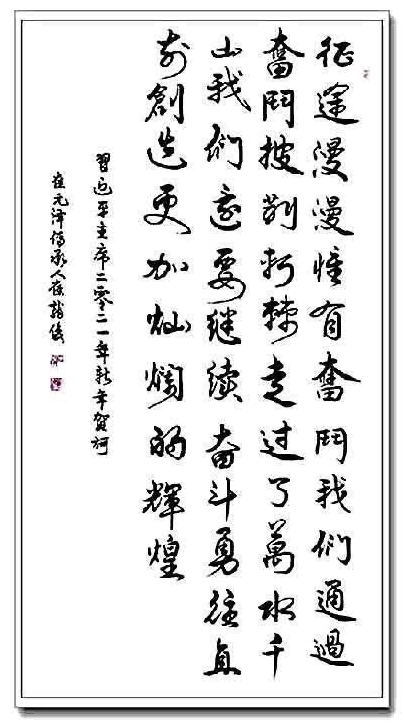 征途漫漫惟有奮鬥我們通過
奮鬥披荆斬棘走過了萬水千
山我們還要继續奋斗勇往直
前創造更加灿爛的輝煌
習近平主席二零二一年新年賀詞
元泽傳承人